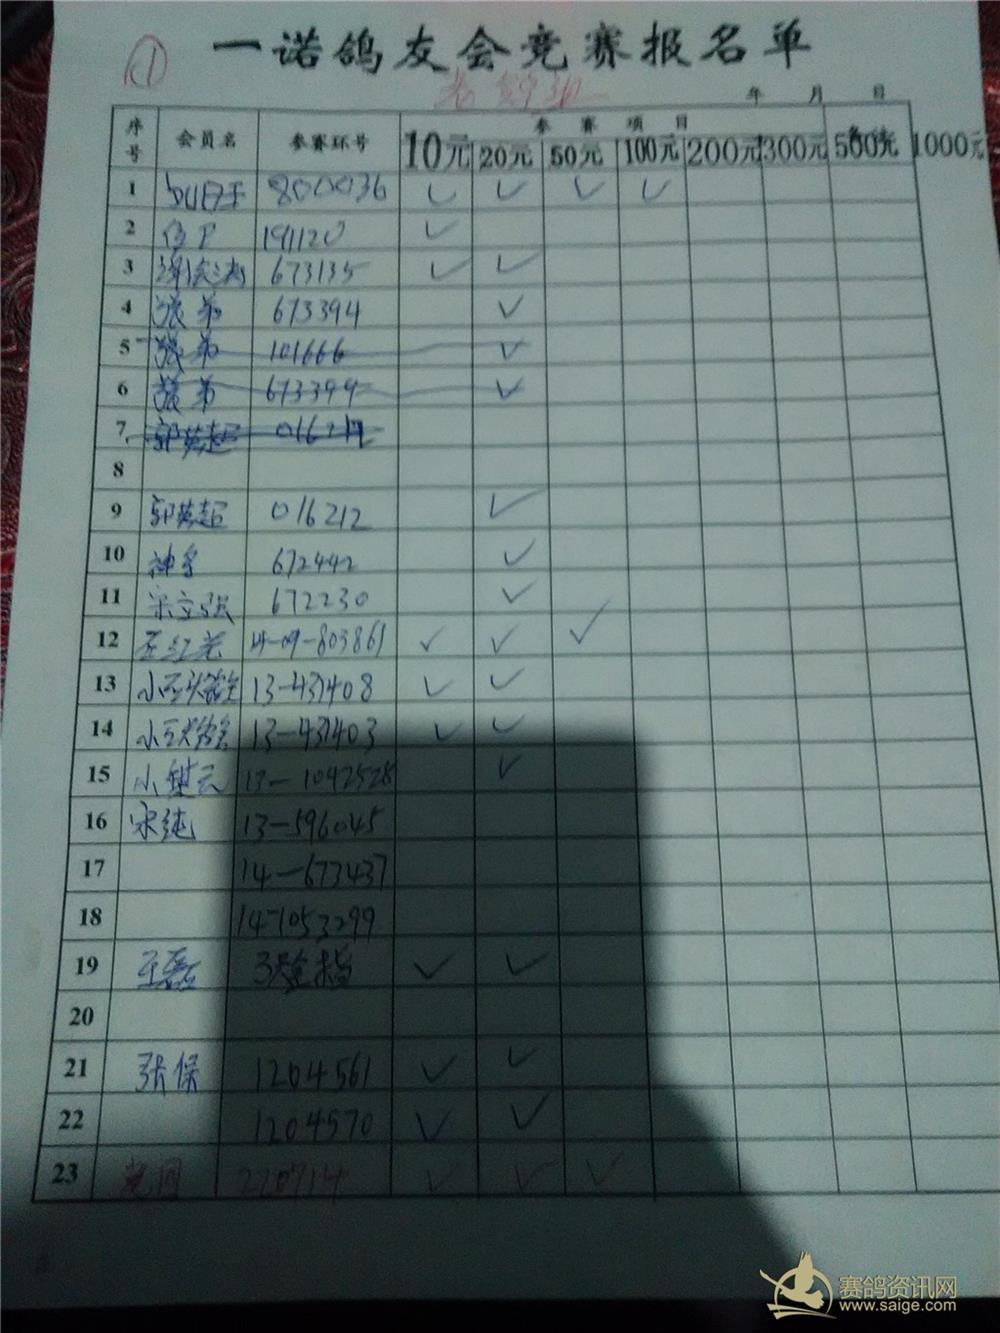 一诺鸽友会竞赛报名单
①
年 月 日
序号 会员名 参赛环号 参赛项目
10元 20元 50元 100元 200元 300元 500元 1000元
1 800036 ✓ ✓ ✓ ✓
2 191120 ✓
3 673135 ✓ ✓
4 张弟 673394 ✓
5 张弟 101666 ✓
6 张弟 673399 ✓
7 郭英超 016212
8
9 郭英超 016212 ✓
10 672442 ✓
11 宋立强 672230 ✓
12 王红光 14-09-803861 ✓ ✓ ✓
13 13-431408 ✓ ✓
14 13-431403 ✓ ✓
15 13-1042528 ✓
16 宋纯 13-596045
17 14-673437
18 14-1053299
19 王磊 ✓ ✓
20
21 张保 1204561 ✓ ✓
22 1204570 ✓ ✓
23 220714 ✓ ✓ ✓
赛鸽资讯网
www.saige.com